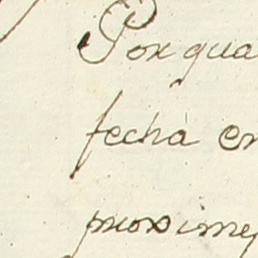 Por qua
fecha en
proxime